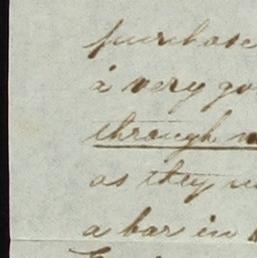 purchase
a very go
through
as they
a bar in